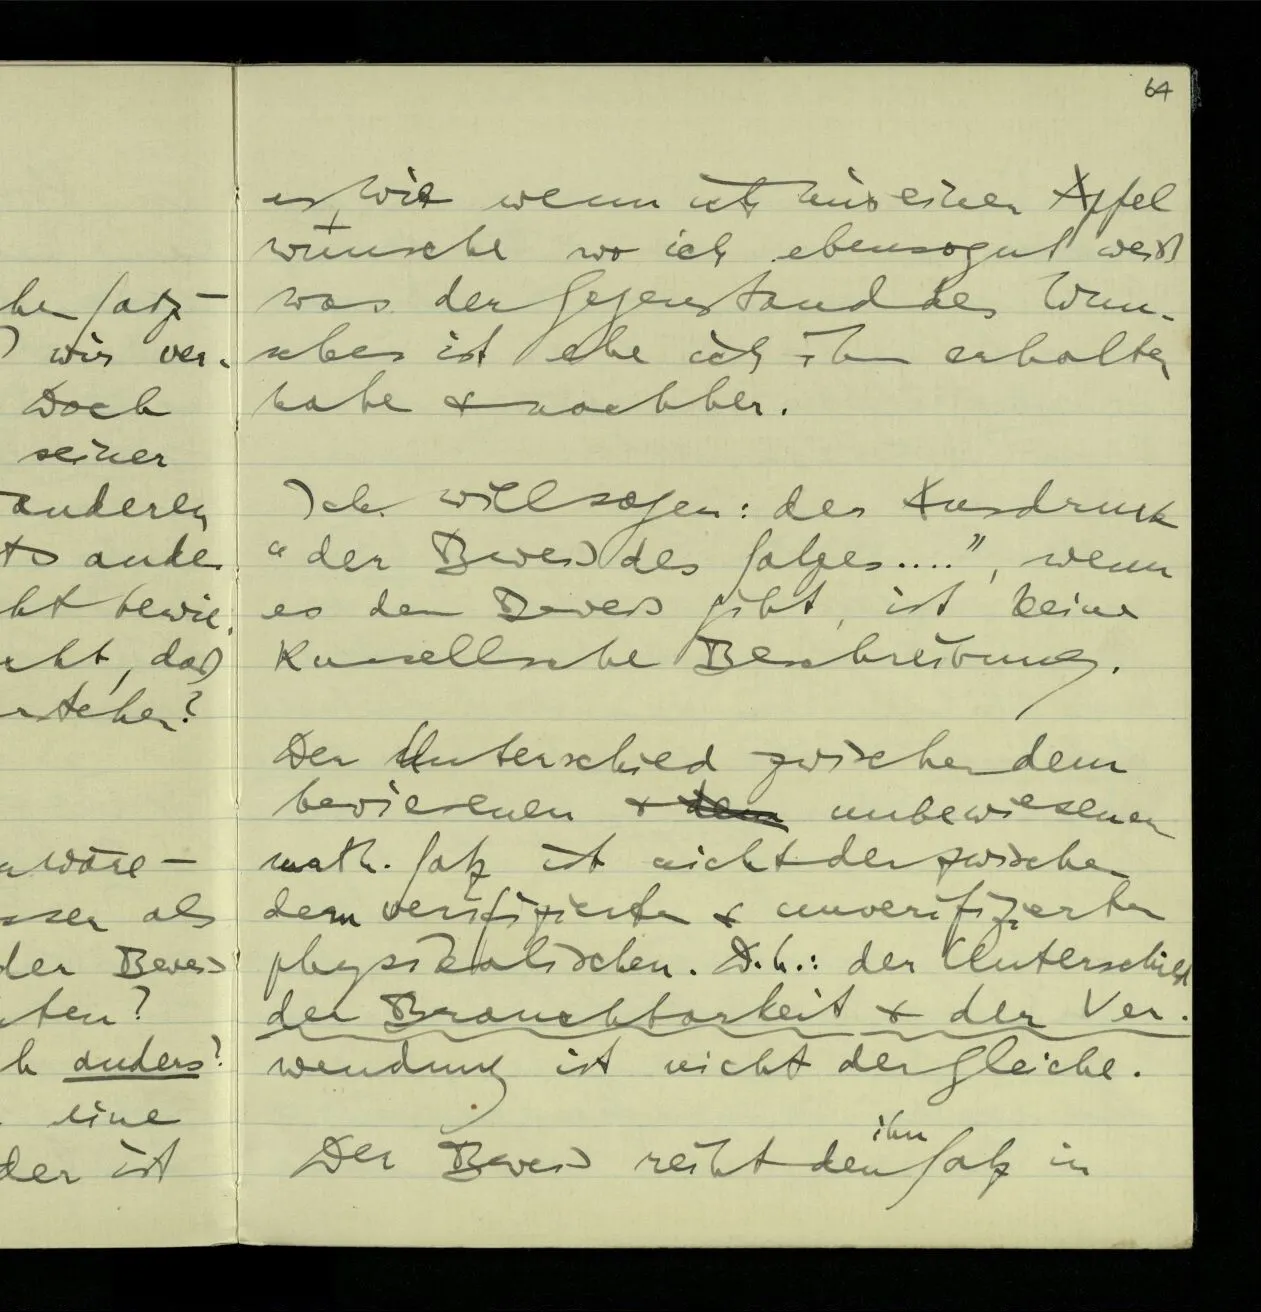 64
he Satz –
wir ver-
Doch
seiner
anderen
ande
ht bewie
cht, daß
rstehen?
wäre –
sser als
der Beweis
ten?
h anders?
eine
der ist
es wie wenn ich mir einen Apfel
wünsche wo ich ebensogut weiß
was der Gegenstand des Wun-
sches ist ehe ich ihn erhalten
habe & nachher.
Ich will sagen: der Ausdruck
"der Beweis des Satzes....", wenn
es den Beweis gibt, ist keine
Russellsche Beschreibung.
Der Unterschied zwischen dem
bewiesenen & dem unbewiesenen
math. Satz ist nicht der zwischen
dem verifizierten & unverifizierten
physikalischen. D.h.: der Unterschied
der Brauchbarkeit & der Ver-
wendung ist nicht der gleiche.
ihn
Der Beweis reiht den Satz in